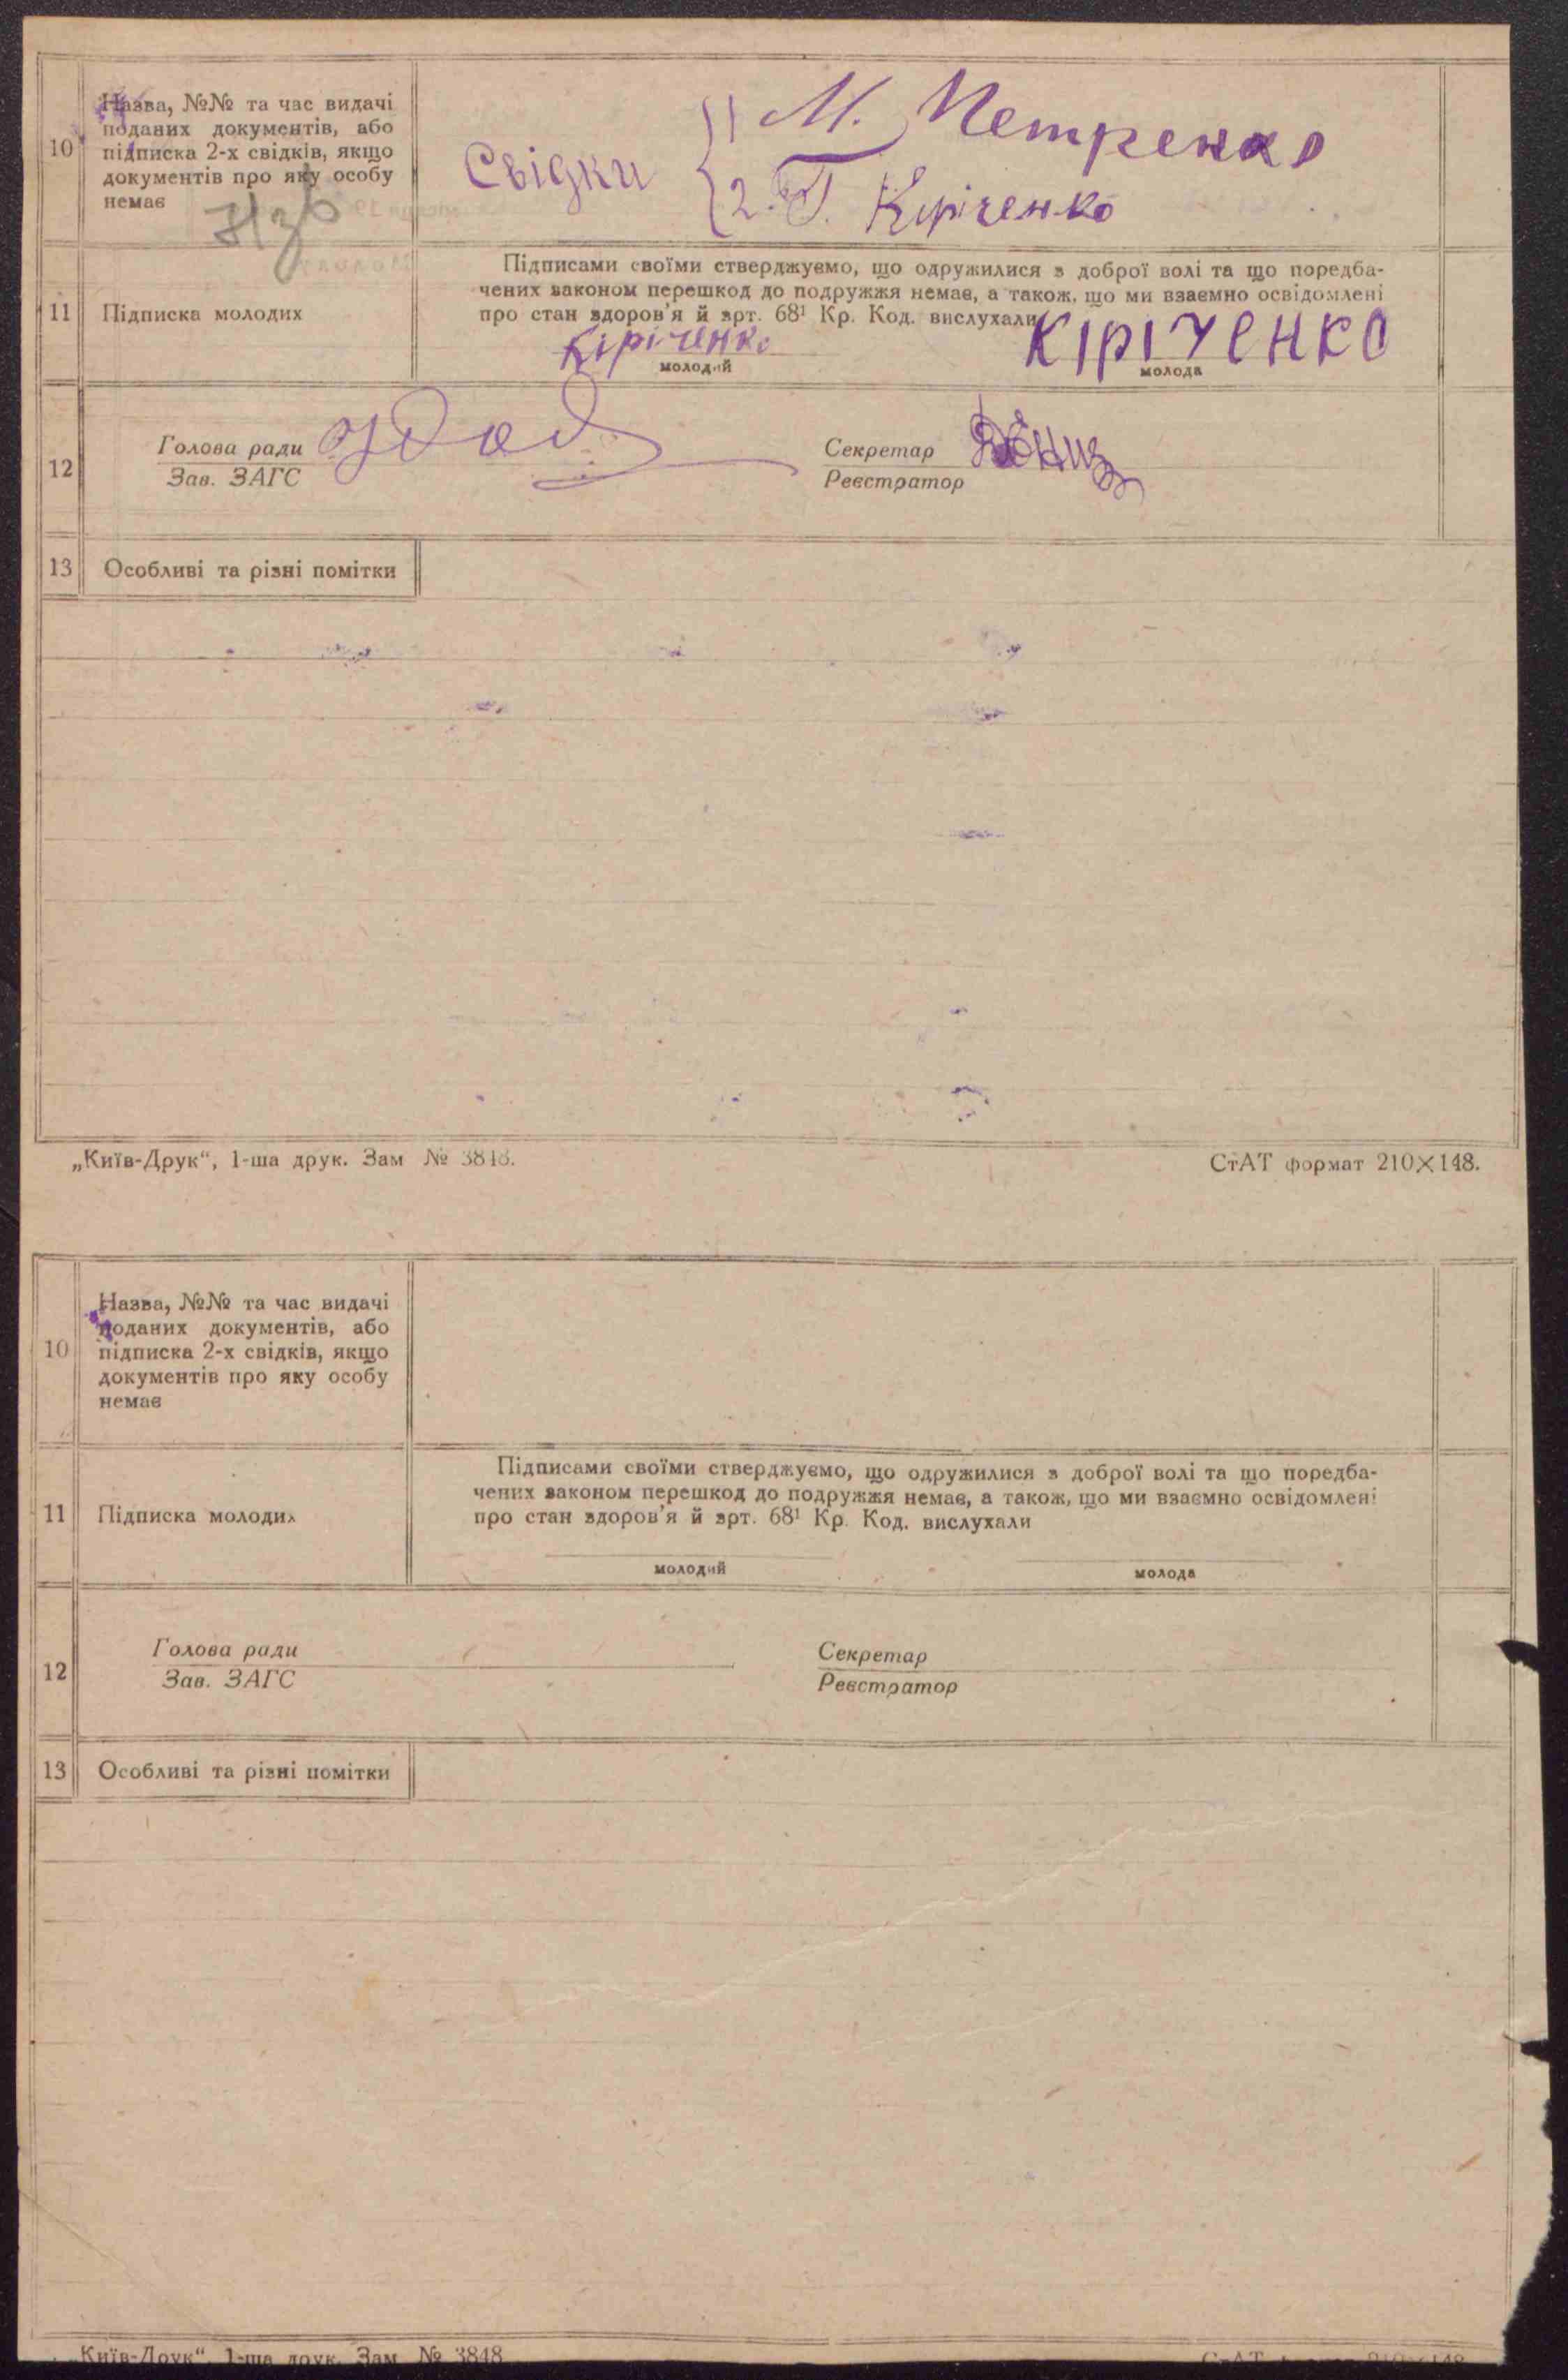 10 Назва, №№ та час видачі
поданих документів, або
підписка 2-х свідків, якщо
документів про яку особу
немає
Свідки
1) М. Петренко
2. Г. Кіріченко
11 Підписка молодих
Підписами своїми стверджуємо, що одружилися з доброї волі та що поредба-
чених законом перешкод до подружжя немає, а також, що ми взаємно освідомлені
про стан здоров'я й арт. 68¹ Кр. Код. вислухали
Кіріченко КІРІЧЕНКО
молодий молода
12 Голова ради
Зав. ЗАГС
Секретар
Реєстратор
13 Особливі та різні помітки
„Київ-Друк“, 1-ша друк. Зам № 3848. СтАТ формат 210×148.
10 Назва, №№ та час видачі
поданих документів, або
підписка 2-х свідків, якщо
документів про яку особу
немає
11 Підписка молодих
Підписами своїми стверджуємо, що одружилися з доброї волі та що поредба-
чених законом перешкод до подружжя немає, а також, що ми взаємно освідомлені
про стан здоров'я й арт. 68¹ Кр. Код. вислухали
молодий молода
12 Голова ради
Зав. ЗАГС
Секретар
Реєстратор
13 Особливі та різні помітки
„Київ-Друк“, 1-ша друк. Зам № 3848 СтАТ формат 210×148